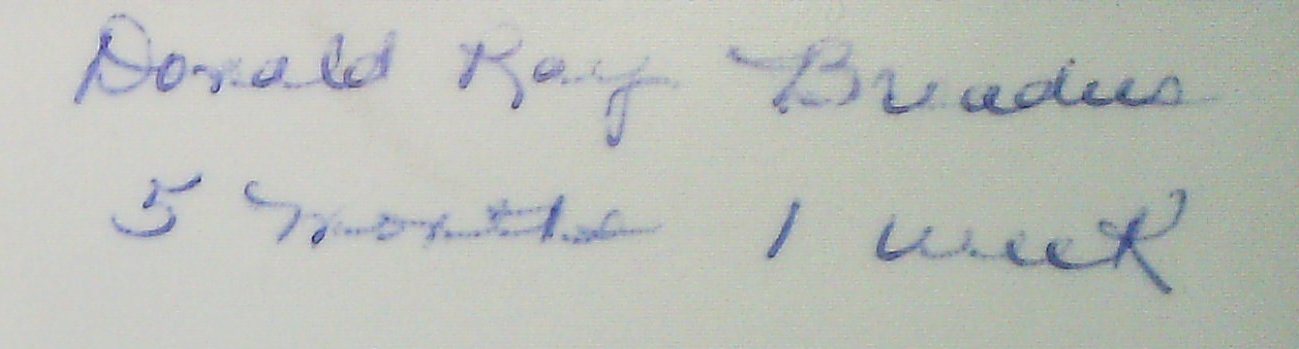 Donald Ray Broadus
5 months 1 week